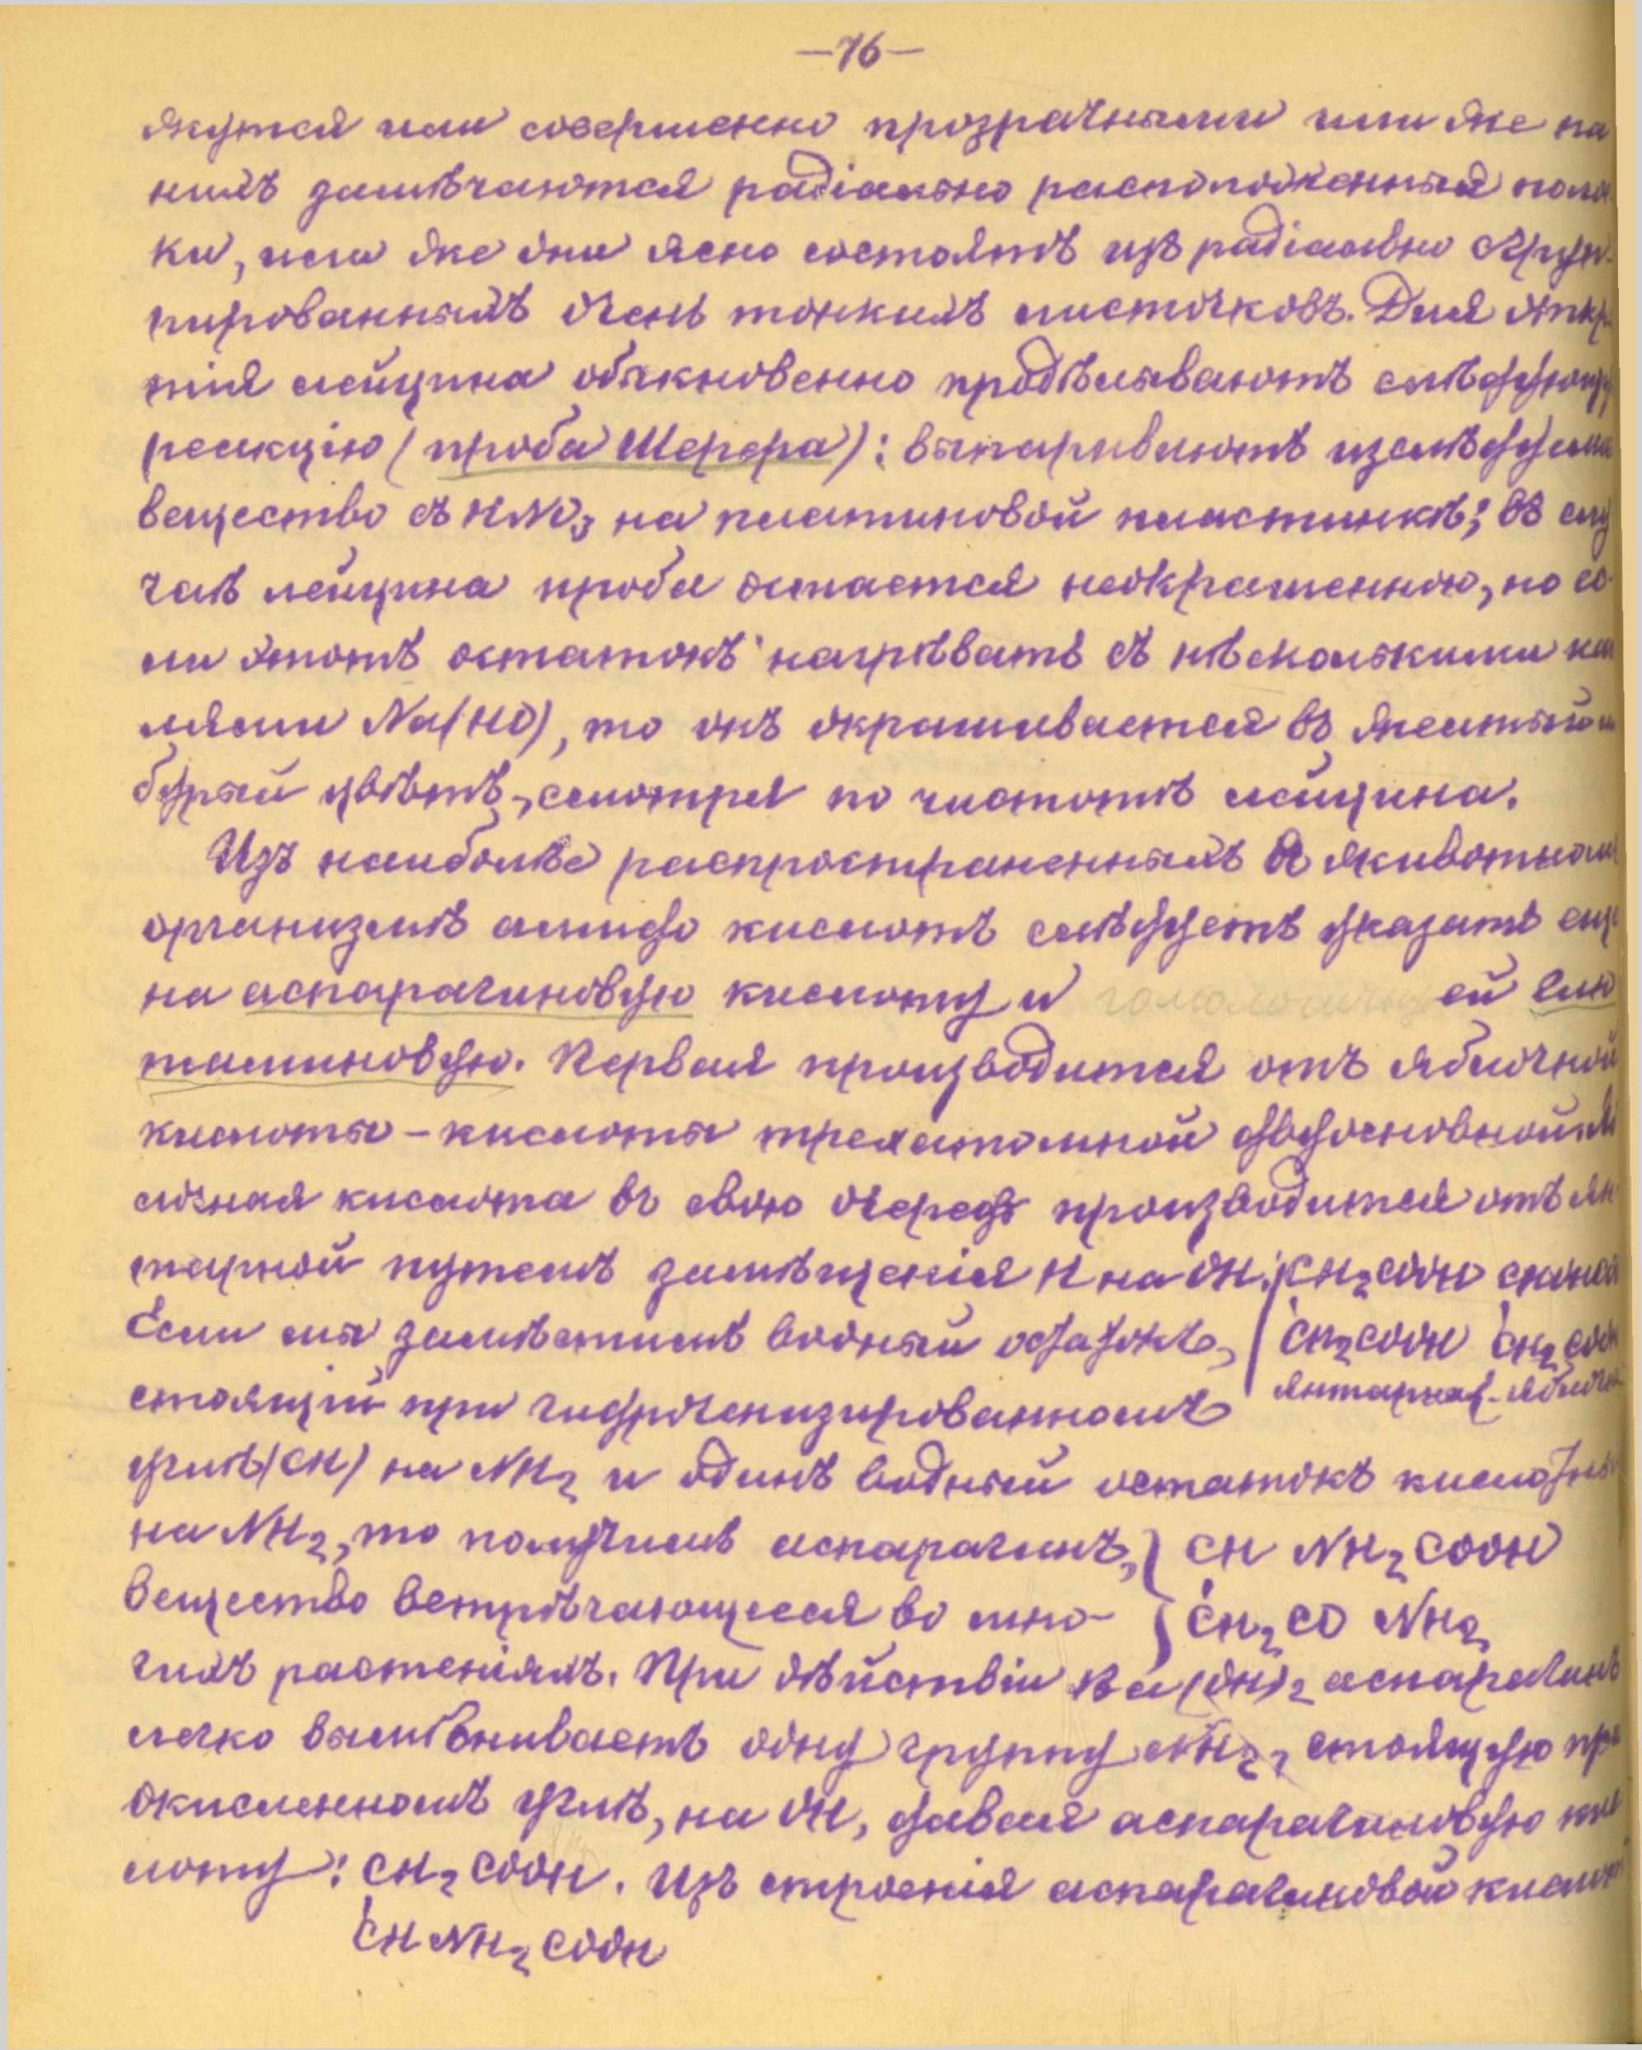 —76—
жутся или совершенно прозрачными или же на
нихъ замѣчаются радіально расположенныя поло
ки, или же они ясно состоятъ изъ радіально сгруп-
пированныхъ очень тонкихъ листочковъ. Для откры
тія лейцина обыкновенно продѣлываютъ слѣдующу
реакцію (проба Шерера): выпариваютъ изслѣдуемое
вещество съ HNO3 на платиновой пластинкѣ; въ слу
чаѣ лейцина проба остается неокрашенною, но ес-
ли этотъ остатокъ нагрѣвать съ нѣсколькими кап
лями Na(HO), то онъ окрашивается въ желтый и
бурый цвѣтъ, смотря по чистотѣ лейцина.
Изъ наиболѣе распространенныхъ въ животномъ
организмѣ амидо кислотъ слѣдуетъ указать еще
на аспарагиновую кислоту и гомологичную ей глю
таминовую. Первая производится отъ яблочной
кислоты – кислоты трехатомной двуосновной. Яб
лочная кислота въ свою очередь производится отъ ян
тарной путемъ замѣщенія H на OH. CH2COOH CHOHCO
Если мы замѣстимъ водный остатокъ, CH2COOH CH2COOH
стоящій при гидрогенизированномъ янтарная - яблочн
углѣ (CH) на NH2 и одинъ водный остатокъ кислотны
на NH2, то получимъ аспарагинъ, } CH NH2 COOH
вещество встрѣчающееся во мно- } CH2 CO NH2
гихъ растеніяхъ. При дѣйствіи Ba(OH)2 аспарагинъ
легко вымѣниваетъ одну группу NH2, стоящую при
окисленномъ углѣ, на OH, давая аспарагиновую кис
лоту: CH2COOH. Изъ строенія аспарагиновой кислоты
CH NH2 COOH